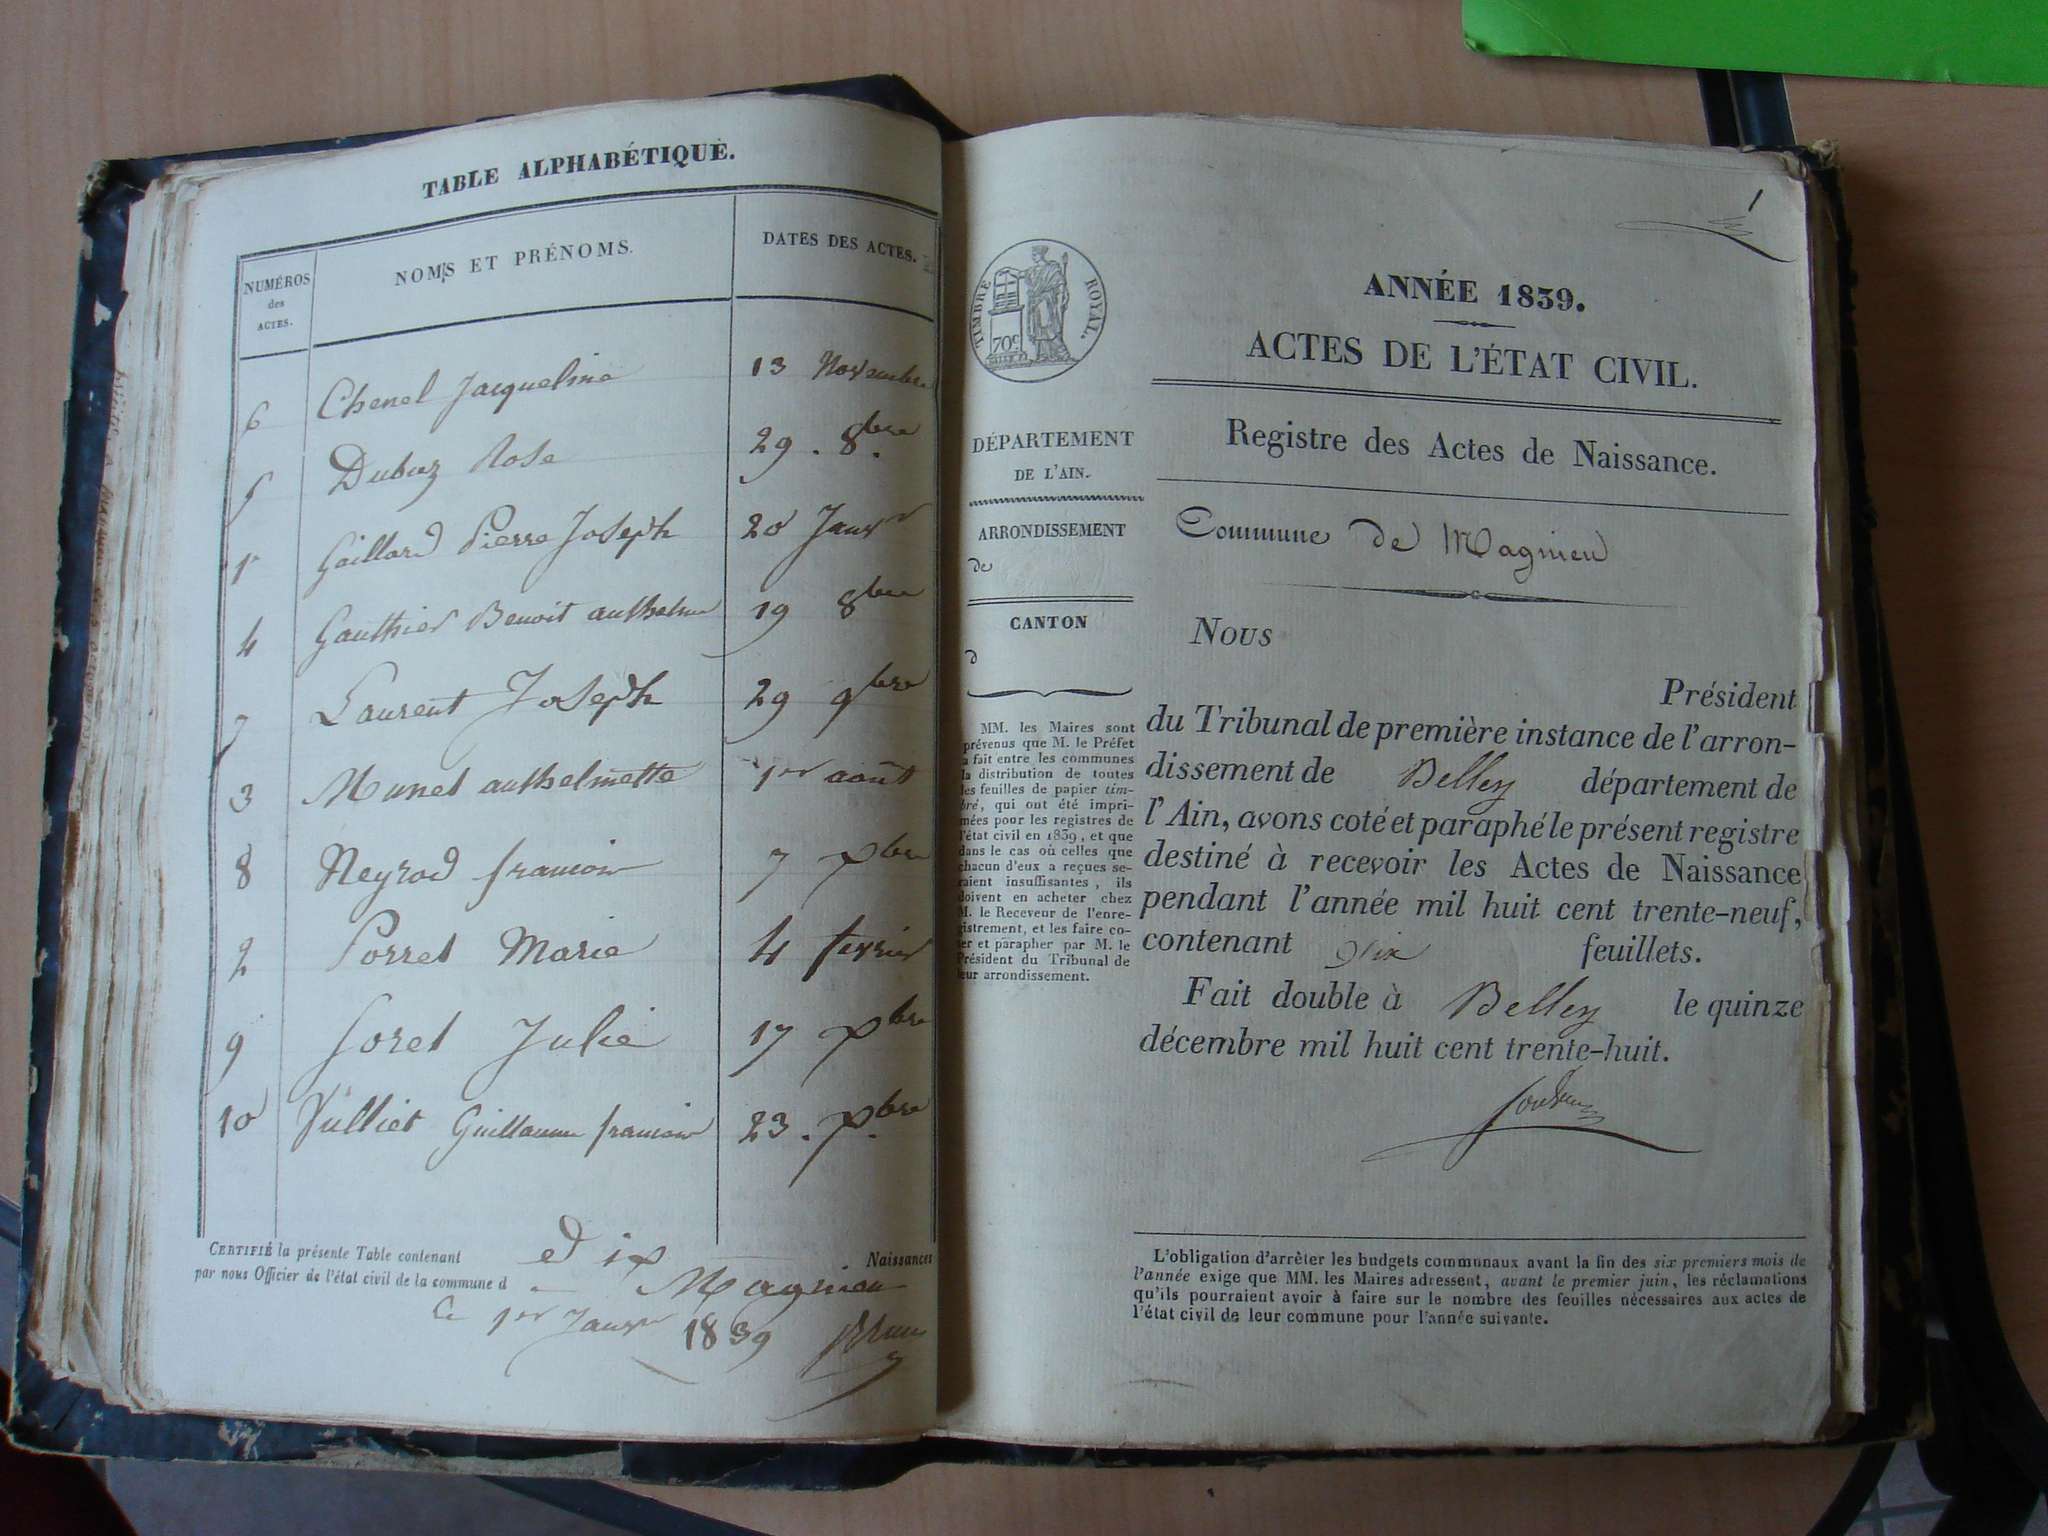 TABLE ALPHABÉTIQUE.
NUMÉROS des ACTES.
NOMS ET PRÉNOMS.
DATES DES ACTES.
6 Chenel Jacqueline 13 Novembre
5 Dubuz Rose 29 . 8bre
1r Gaillard Pierre Joseph 20 Janvr
4 Gauthier Benoit anthelme 19 8bre
7 Laurent Joseph 29 9bre
3 Munet anthelmette 1er août
8 Neyrod francois 7 xbre
2 Porret Marie 4 fevrier
9 Soret Julie 17 xbre
10 Vulliet Guillaume francois 23 . xbre
CERTIFIÉ la présente Table contenant dix Naissances
par nous Officier de l'état civil de la commune d Magnieu
Ce 1er Janvr 1839
1
TIMBRE ROYAL.
70c
ANNÉE 1839.
ACTES DE L'ÉTAT CIVIL.
Registre des Actes de Naissance.
DÉPARTEMENT
DE L'AIN.
ARRONDISSEMENT
de
CANTON
d
MM. les Maires sont
prévenus que M. le Préfet
a fait entre les communes
la distribution de toutes
les feuilles de papier tim-
bré, qui ont été impri-
mées pour les registres de
l'état civil en 1839, et que
dans le cas où celles que
chacun d'eux a reçues se-
raient insuffisantes, ils
doivent en acheter chez
M. le Receveur de l'enre-
gistrement, et les faire co-
ter et parapher par M. le
Président du Tribunal de
leur arrondissement.
Commune de Magnieu
Nous
Président
du Tribunal de première instance de l'arron-
dissement de Belley département de
l'Ain, avons coté et paraphé le présent registre
destiné à recevoir les Actes de Naissance
pendant l'année mil huit cent trente-neuf,
contenant six feuillets.
Fait double à Belley le quinze
décembre mil huit cent trente-huit.
L'obligation d'arrêter les budgets communaux avant la fin des six premiers mois de
l'année exige que MM. les Maires adressent, avant le premier juin, les réclamations
qu'ils pourraient avoir à faire sur le nombre des feuilles nécessaires aux actes de
l'état civil de leur commune pour l'année suivante.